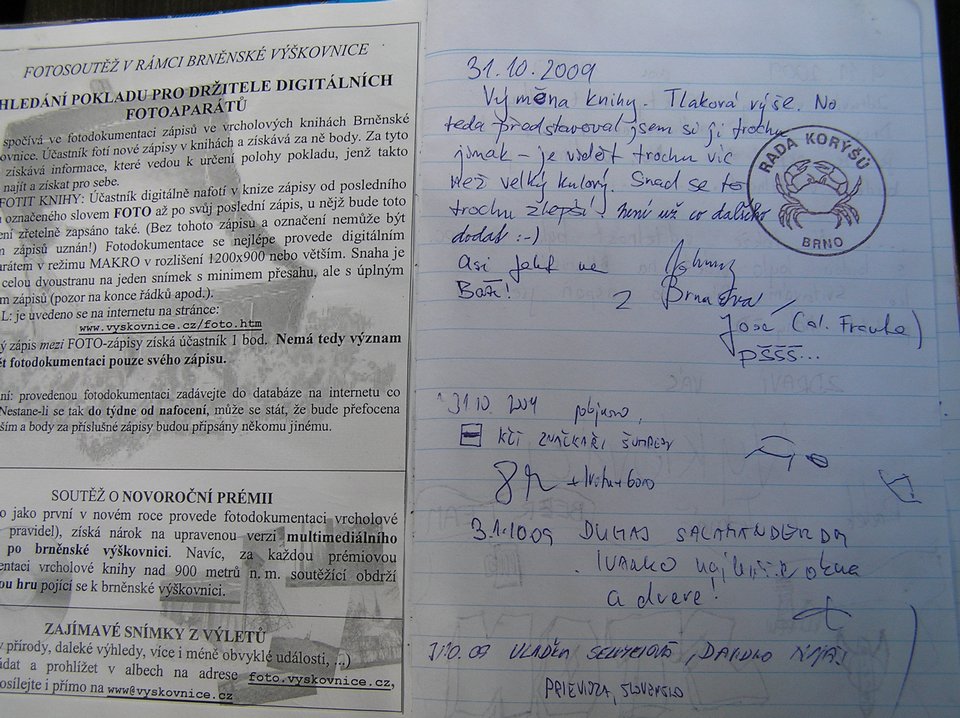 FOTOSOUTĚŽ V RÁMCI BRNĚNSKÉ VÝŠKOVNICE
HLEDÁNÍ POKLADU PRO DRŽITELE DIGITÁLNÍCH
FOTOAPARÁTŮ
spočívá ve fotodokumentaci zápisů ve vrcholových knihách Brněnské
ovnice. Účastník fotí nové zápisy v knihách a získává za ně body. Za tyto
získává informace, které vedou k určení polohy pokladu, jenž takto
najít a získat pro sebe.
FOTIT KNIHY: Účastník digitálně nafotí v knize zápisy od posledního
označeného slovem FOTO až po svůj poslední zápis, u nějž bude toto
ení zřetelně zapsáno také. (Bez tohoto zápisu a označení nemůže být
n zápisů uznán!) Fotodokumentace se nejlépe provede digitálním
arátem v režimu MAKRO v rozlišení 1200x900 nebo větším. Snaha je
celou dvoustranu na jeden snímek s minimem přesahu, ale s úplným
m zápisů (pozor na konce řádků apod.).
L: je uvedeno se na internetu na stránce:
www.vyskovnice.cz/foto.htm
ý zápis mezi FOTO-zápisy získá účastník 1 bod. Nemá tedy význam
ět fotodokumentaci pouze svého zápisu.
ní: provedenou fotodokumentaci zadávejte do databáze na internetu co
Nestane-li se tak do týdne od nafocení, může se stát, že bude přefocena
ším a body za příslušné zápisy budou připsány někomu jinému.
SOUTĚŽ O NOVOROČNÍ PRÉMII
o jako první v novém roce provede fotodokumentaci vrcholové
pravidel), získá nárok na upravenou verzi multimediálního
po brněnské výškovnici. Navíc, za každou prémiovou
entaci vrcholové knihy nad 900 metrů n. m. soutěžící obdrží
ou hru pojící se k brněnské výškovnici.
ZAJÍMAVÉ SNÍMKY Z VÝLETŮ
v přírody, daleké výhledy, více i méně obvyklé události, ...)
ádat a prohlížet v albech na adrese foto.vyskovnice.cz,
osílejte i přímo na www@vyskovnice.cz
31.10.2009
Výměna knihy. Tlaková výše. No
teda představoval jsem si ji trochu
jinak – je vidět trochu víc
než velký kulový. Snad se to
trochu zlepší! není už co dalšího
dodat :-)
Asi ne
Bože!
z Brna
José (al. Franta)
pššš...
RADA KORÝŠŮ
BRNO
31.10. 2009
KČT ZNAČKAŘI
31.10.09 DUHAJ SALAMANDER DA
IVANKO najlepšie okna
a dvere!
31.10.09 VLAĎKA
PRIEVIDZA, SLOVENSKO